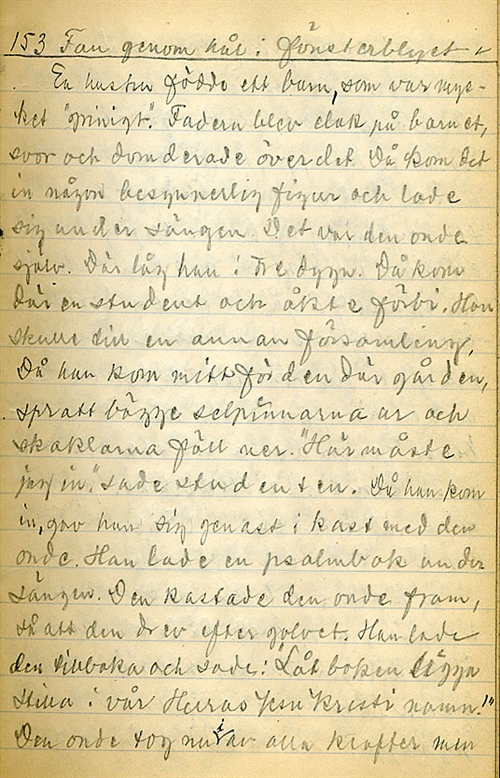 153 Fan genom hål i fönsterblyet
En hustru födde ett barn, som var myc-
ket "grinigt". Fadern blev elak på barnet,
svor och domderade över det. Då kom det
in någon besynnerlig figur och lade
sig under sängen. Det var den onde
själv. Där låg han i tre dygn. Då kom
där en student och åkte förbi. Han
skulle till en annan församling.
Då han kom mitt för den där gården,
spratt bägge selpinnarna ur och
skaklarna föll ner. "Här måste
jag in," sade studenten. Då han kom
in, gav han sig genast i kast med den
onde. Han lade en psalmbok under
sängen. Den kastade den onde fram,
så att den drev efter golvet. Han lade
den tillbaka och sade: "Låt boken ligga
stilla i vår Herras Jesu Kristi namn."
Den onde tog nu av alla krafter men